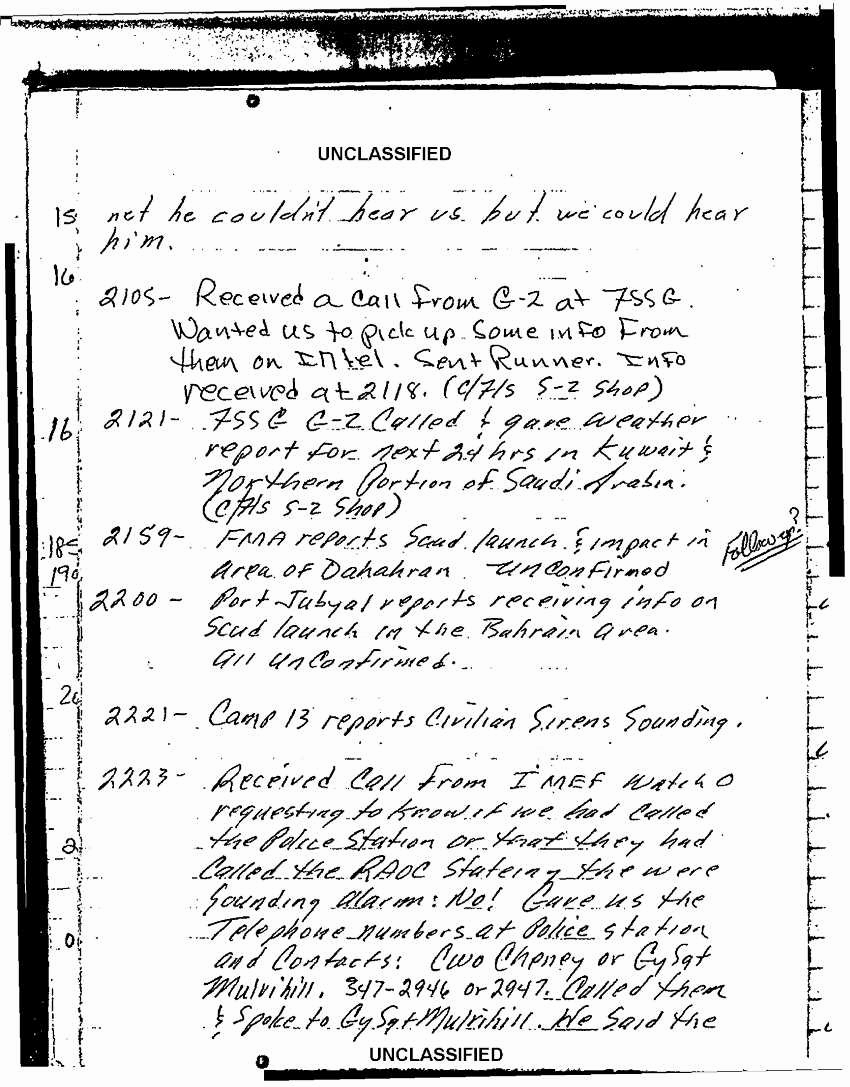 UNCLASSIFIED
15 net he couldn't hear us but we could hear
him.
16
2105- Received a call from G-2 at 7SSG.
Wanted us to pick up some info From
them on INtel. Sent Runner. Info
received at 2118. (C/7/s S-2 Shop)
16 2121- 7SSG G-2 Called & gave weather
report for next 24 hrs in Kuwait &
Northern Portion of Saudi Arabia.
(C/7/s S-2 Shop)
18 2159- FMA reports Scud launch & impact in Follow up?
19 area of Dahahran unconfirmed
2200- Port Jubyal reports receiving info on
Scud launch in the Bahrain area.
All unconfirmed.
2221- Camp 13 reports Civilian Sirens Sounding.
2223- Received Call From I MEF Watch O
requesting to know if we had called
the Police Station or that they had
Called the RAOC Stateing the were
Sounding alarm: No! Gave us the
Telephone numbers at Police station
and Contacts: CWO Cheney or GySgt
Mulvihill. 347-2946 or 2947. Called them
& Spoke to GySgt Mulvihill. We Said the
UNCLASSIFIED